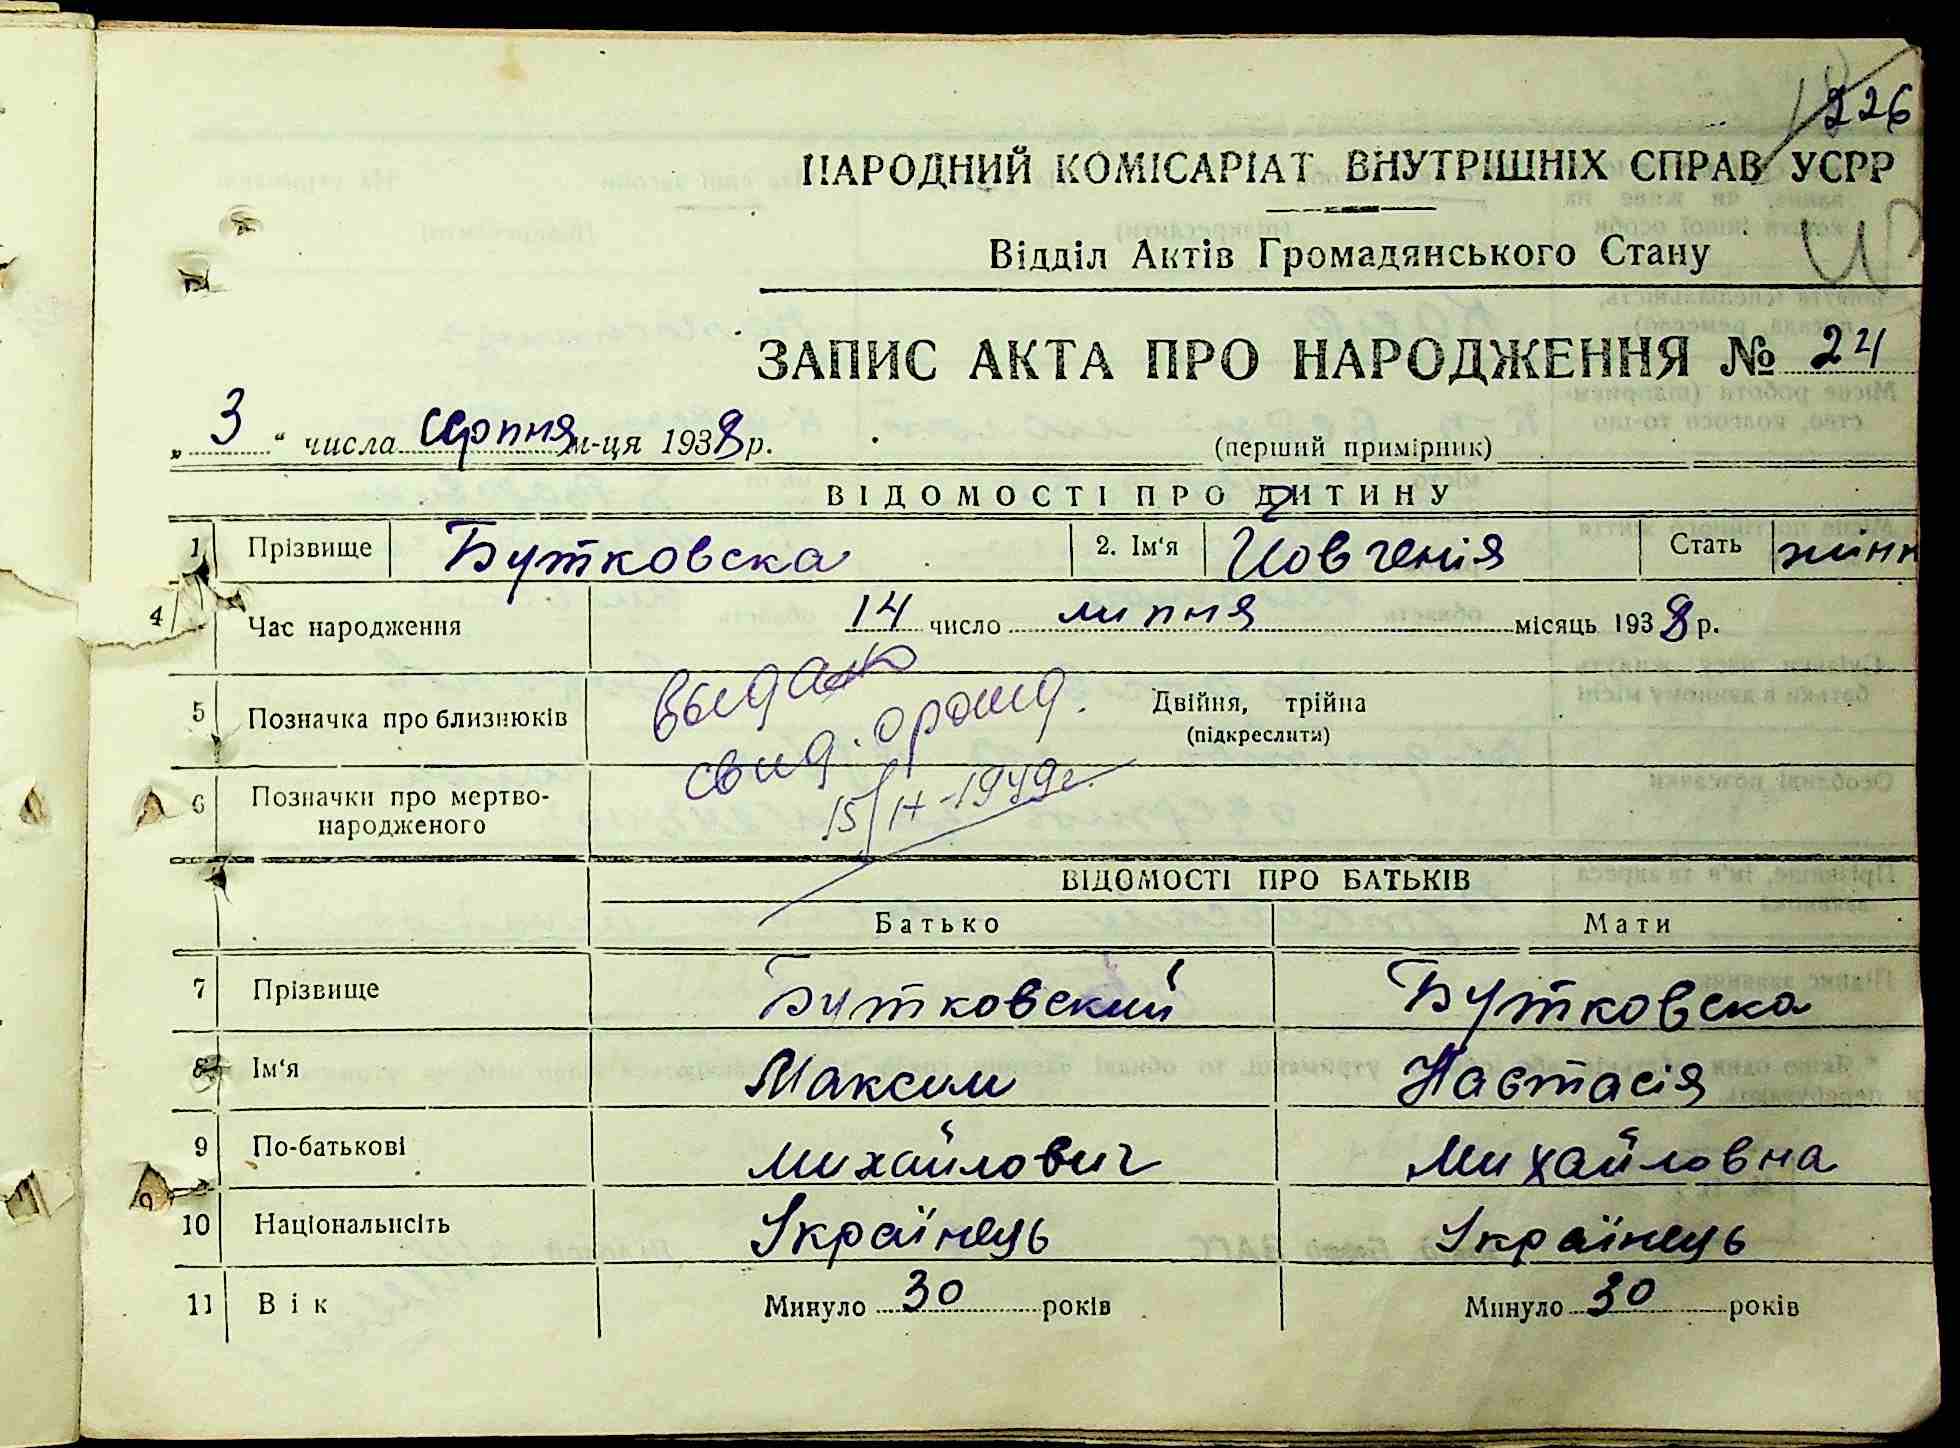 226
НАРОДНИЙ КОМІСАРІАТ ВНУТРІШНІХ СПРАВ УСРР
Відділ Актів Громадянського Стану
ЗАПИС АКТА ПРО НАРОДЖЕННЯ № 24
„ 3 “ числа серпня м-ця 1938 р. (перший примірник)
ВІДОМОСТІ ПРО ДИТИНУ
1 Прізвище Бутковска 2. Ім‘я Йовгенія Стать жінк
4 Час народження 14 число липня місяць 1938 р.
5 Позначка про близнюків Двійня, трійна
(підкреслити)
выдано
свид. о рожд.
15/IX-1949г.
6 Позначки про мертво-
народженого
ВІДОМОСТІ ПРО БАТЬКІВ
Батько Мати
7 Прізвище Бутковский Бутковска
8 Ім‘я Максим Настасія
9 По-батькові Михайлович Михайловна
10 Національність Українець Українець
11 Вік Минуло 30 років Минуло 30 років